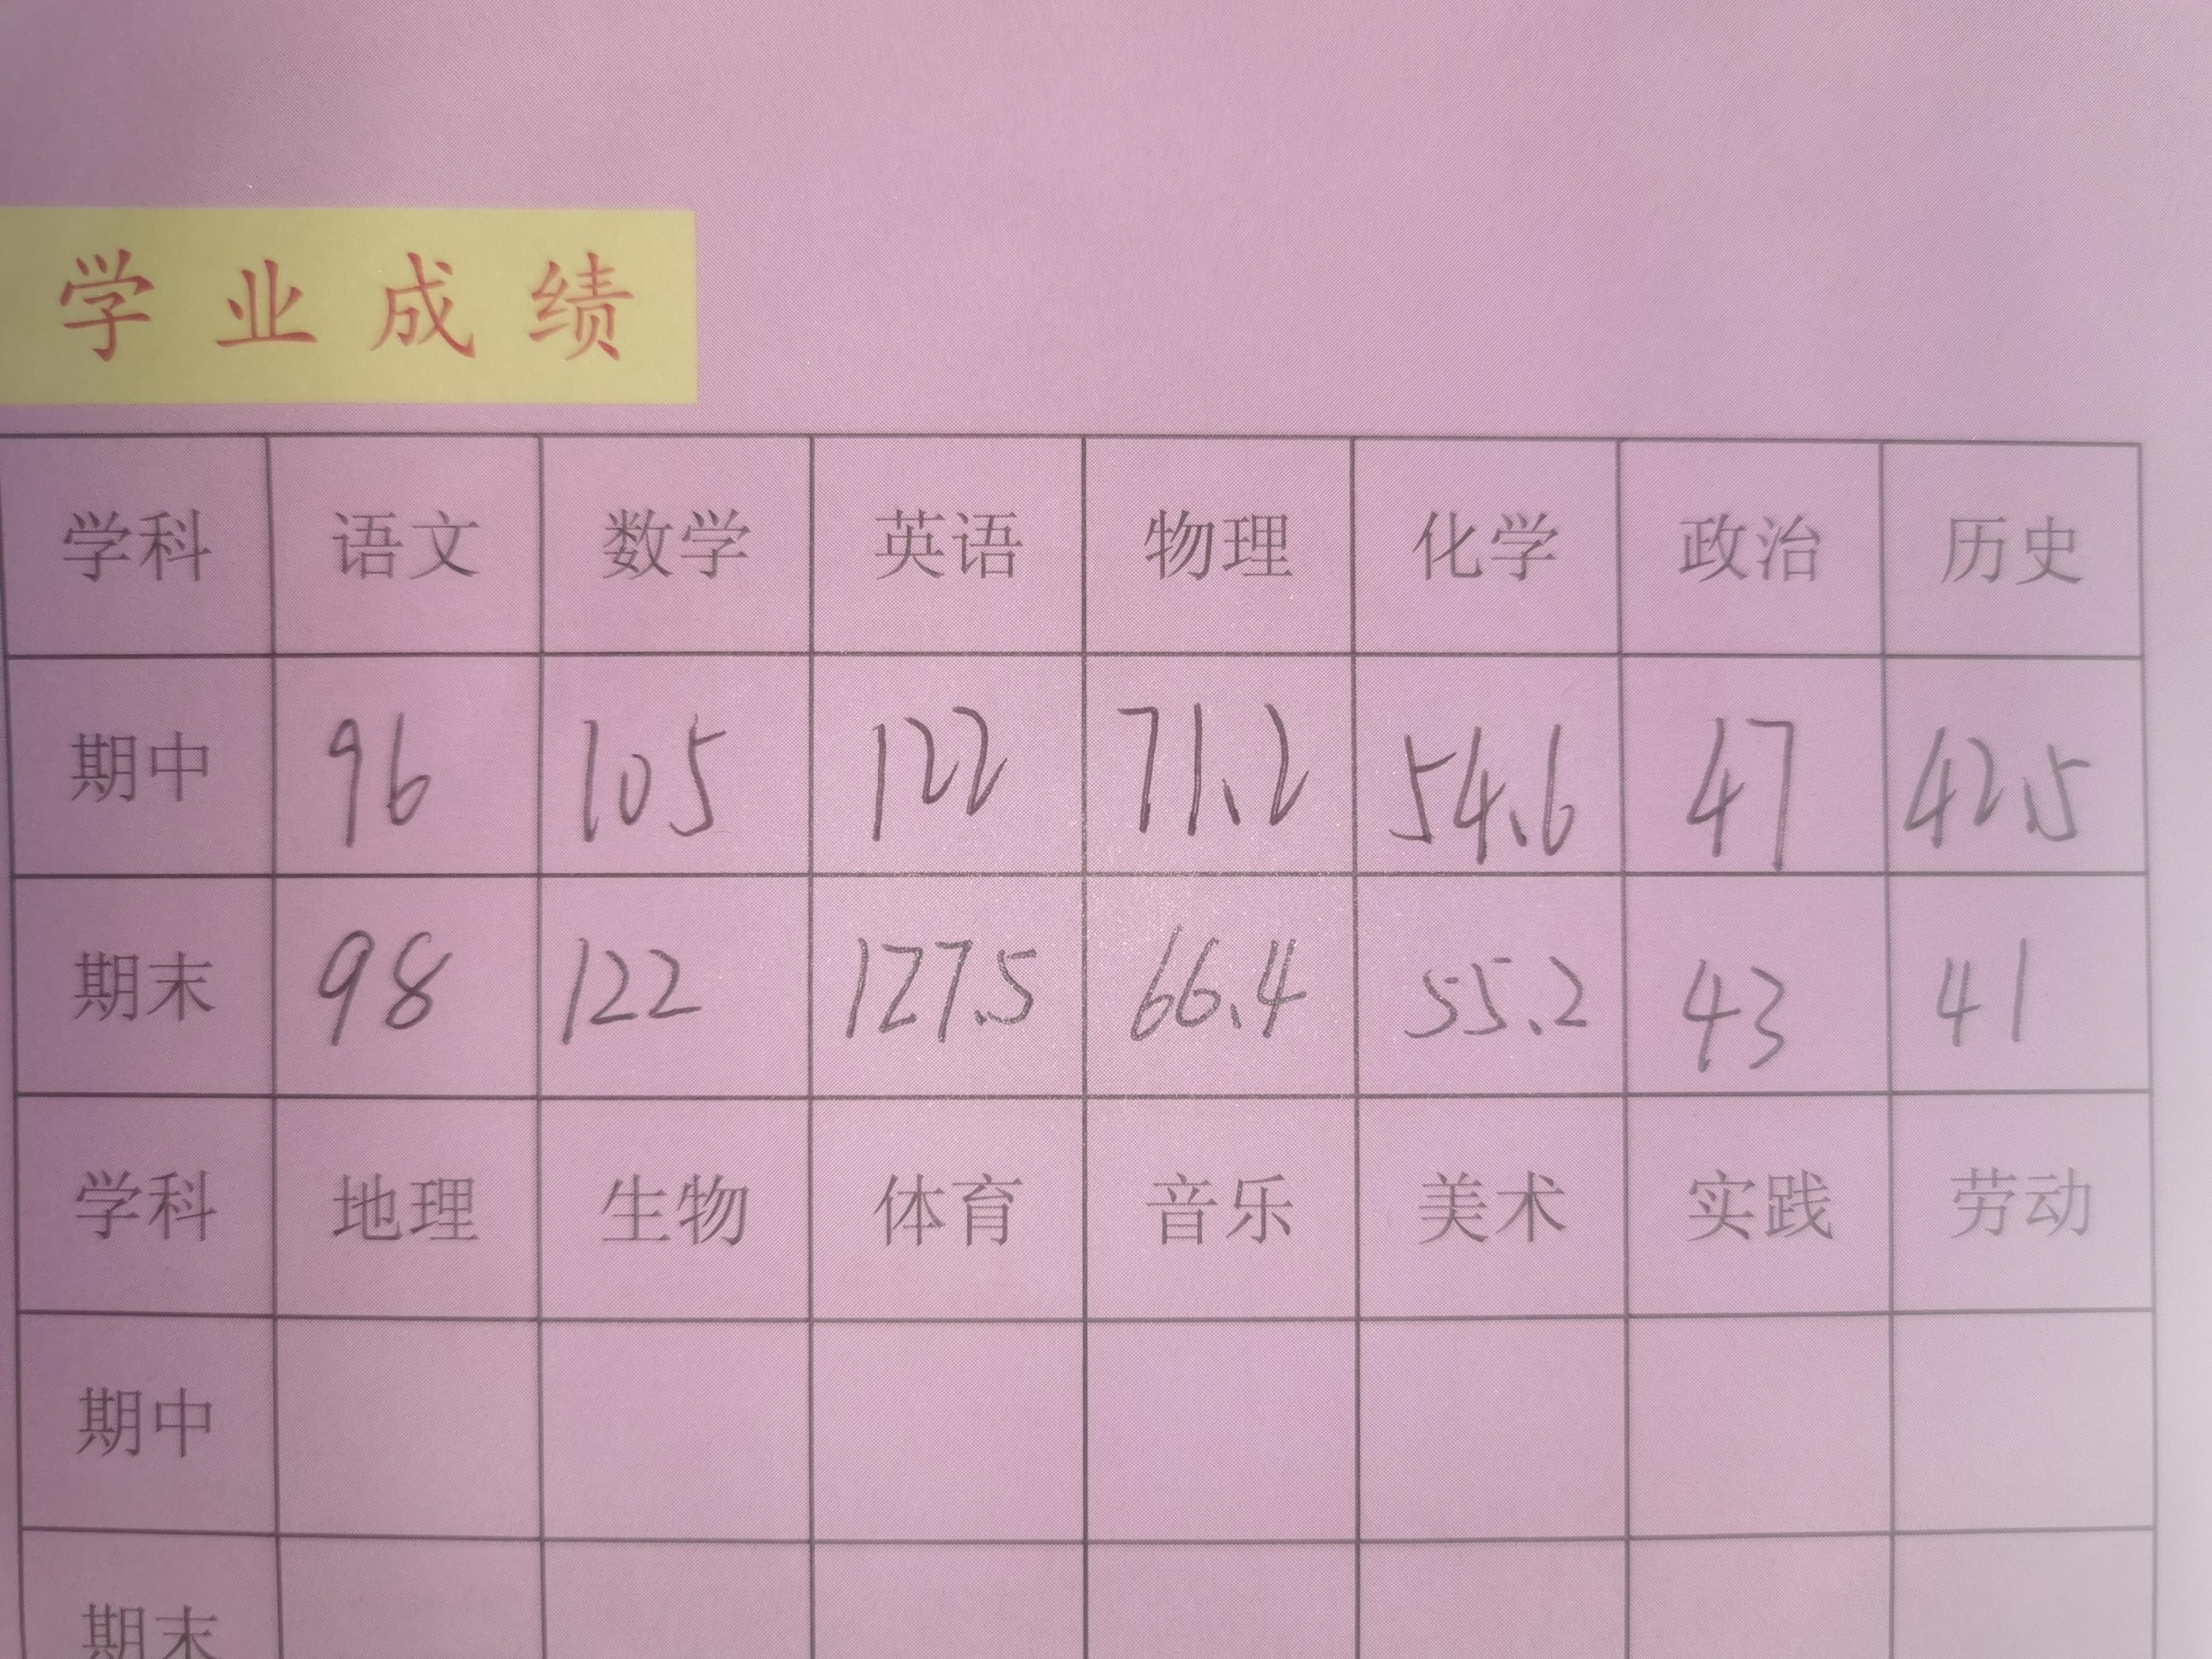 学业成绩
学科 语文 数学 英语 物理 化学 政治 历史
期中 96 105 122 71.2 54.6 47 42.5
期末 98 122 127.5 66.4 55.2 43 41
学科 地理 生物 体育 音乐 美术 实践 劳动
期中
期末